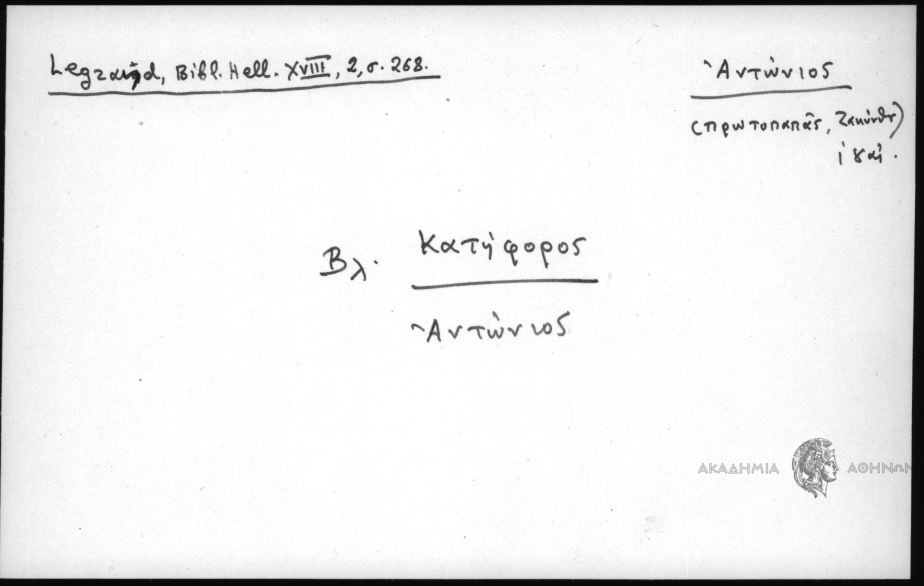 Legrand, Bibl. Hell. XVIII, 2, σ. 268.
Ἀντώνιος
(πρωτοπαπᾶς, Ζακύνθ)
Βλ. Κατήφορος
Ἀντώνιος
ΑΚΑΔΗΜΙΑ ΑΘΗΝΩΝ